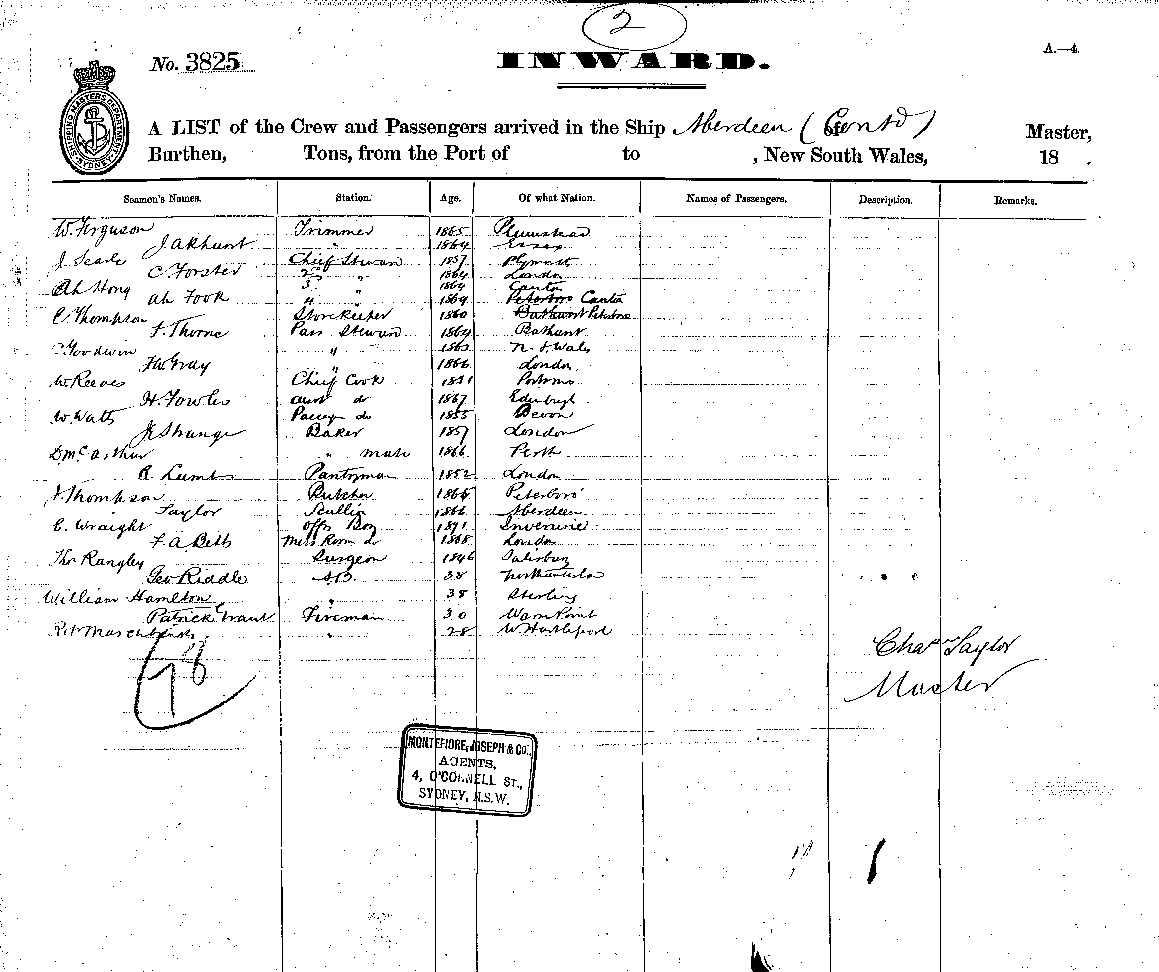 2
No. 3825
INWARD.
A.—4.
SHIPPING MASTERS DEPARTMENT SYDNEY
A LIST of the Crew and Passengers arrived in the Ship Aberdeen (Contd) of Master,
Burthen, Tons, from the Port of to , New South Wales, 18 .
Seamen's Names. Station. Age. Of what Nation. Names of Passengers. Description. Remarks.
W. Ferguson Trimmer 1865 Plumstead
J Akhunt " 1864 Essex
J. Searle Chief Stewan 1857 Plymth
C. Forster 2nd " 1864 London
Ah Hong 3 " 1864 Canton
Ah Fook " " 1864 Peterboro Canton
C. Thompson Storekeeper 1860 Bathurst Peterboro
F. Thorne Pass Stewan 1864 Bathurst
Goodwin " 1863 N. S. Wales
FW Gray " 1866 London
W Reeves Chief Cook 1851
H. Fowles do 1867 Edinburgh
W. Watts Passgr do 1855 Devon
J. Strange Baker 1857 London
D McArthur " mate 1866 Perth
R. Lumb Pantryman 1852 London
J Thompson Butcher 1865 Peterboro'
Taylor 1866 Aberdeen
C. Wraight Offrs Boy 1871
F. A Betts Mess Room do 1868 London
Thos Rangley Surgeon 1846 Salisbury
Geo Riddle A.B. 38
William Hamilton " 38 Sterling
Patrick Grant Fireman 30 Warnpoint
" 28 W Hartlepool
78
Chas Taylor
Master
MONTEFIORE, JOSEPH & CO.,
AGENTS,
4, O'CONNELL ST.,
SYDNEY, N.S.W.